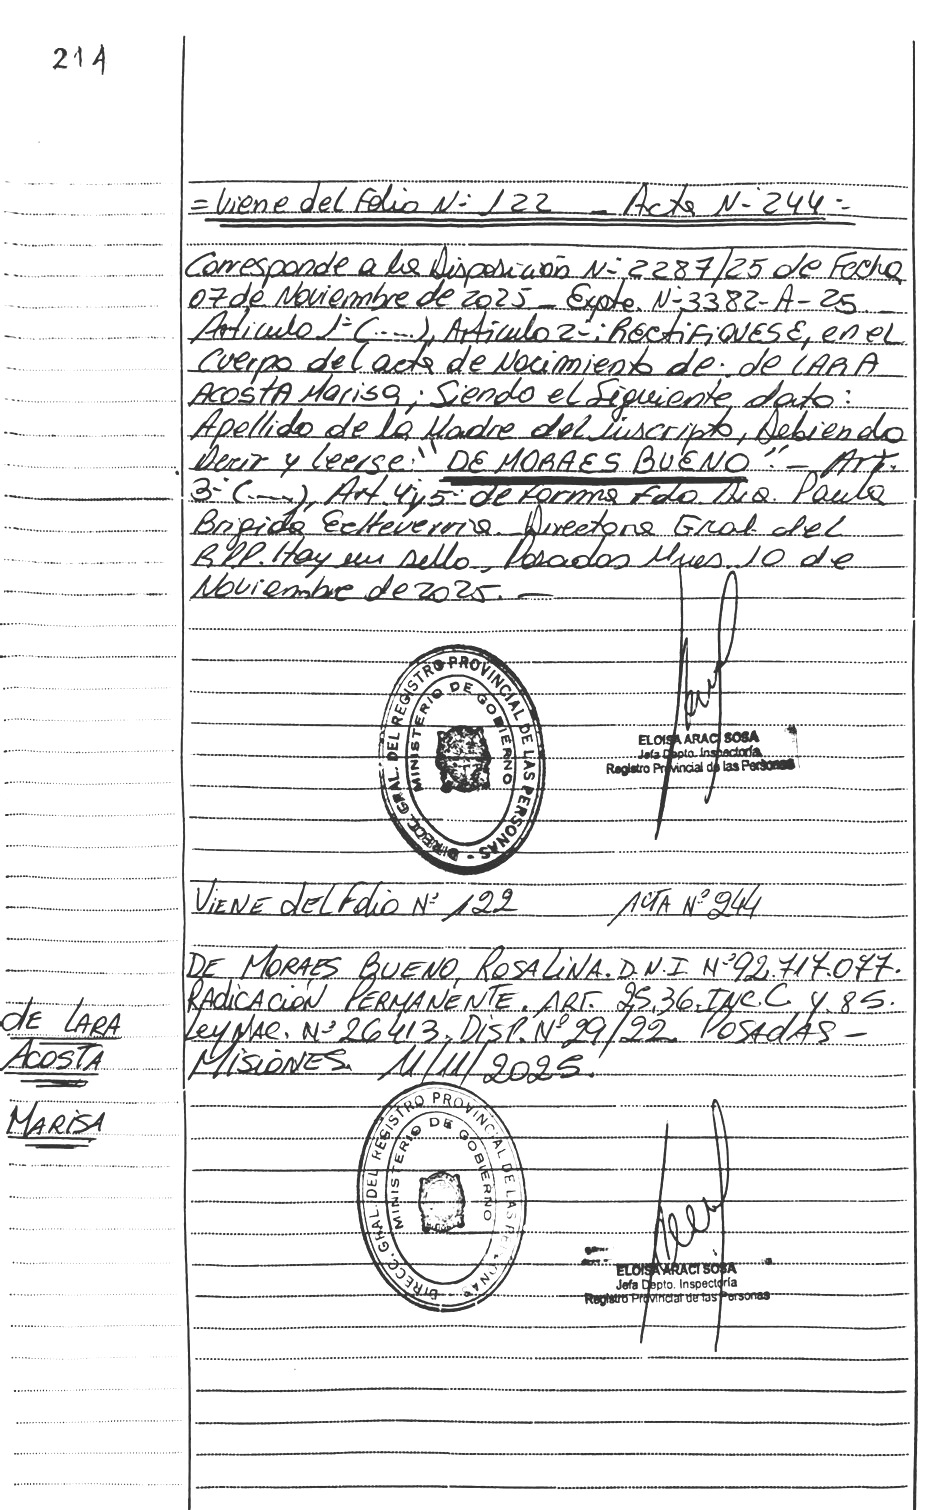 214
= Viene del Folio N° 122 - Acta N° 244 -
Corresponde a la Disposición N° 2287/25 de Fecha
07 de Noviembre de 2025 - Expte. N° 3382-A-25
Artículo 1° (....), Artículo 2°: RECTIFIQUESE, en el
Cuerpo del acta de Nacimiento de: de LARA
ACOSTA Marisa; Siendo el Siguiente dato:
Apellido de la Madre del inscripto, Debiendo
Decir y Leerse: "DE MORAES BUENO" - Art.
3° (....), Art. 4 y 5 de Forma Fdo. Dra. Paula
Brigida Echeverria Directora Gral del
RPP. Hay un sello, Posadas Mnes 10 de
Noviembre de 2025. -
DIRECC. GRAL. DEL REGISTRO PROVINCIAL DE LAS PERSONAS -
MINISTERIO DE GOBIERNO
ELOISA ARACI SOSA
Jefa Depto. Inspectoría
Registro Provincial de las Personas
VIENE del Folio N° 122 ACTA N° 244
DE MORAES BUENO, ROSALINA. D.N.I N° 92.717.077.
RADICACIÓN PERMANENTE. ART. 25.36.INC.C. Y 85.
Ley NAC. N° 26413. DISP. N° 29/22 POSADAS -
MISIONES. 11/11/2025.
de LARA
ACOSTA
MARISA
DIRECC. GRAL. DEL REGISTRO PROVINCIAL DE LAS PERSONAS -
MINISTERIO DE GOBIERNO
ELOISA ARACI SOSA
Jefa Depto. Inspectoría
Registro Provincial de las Personas